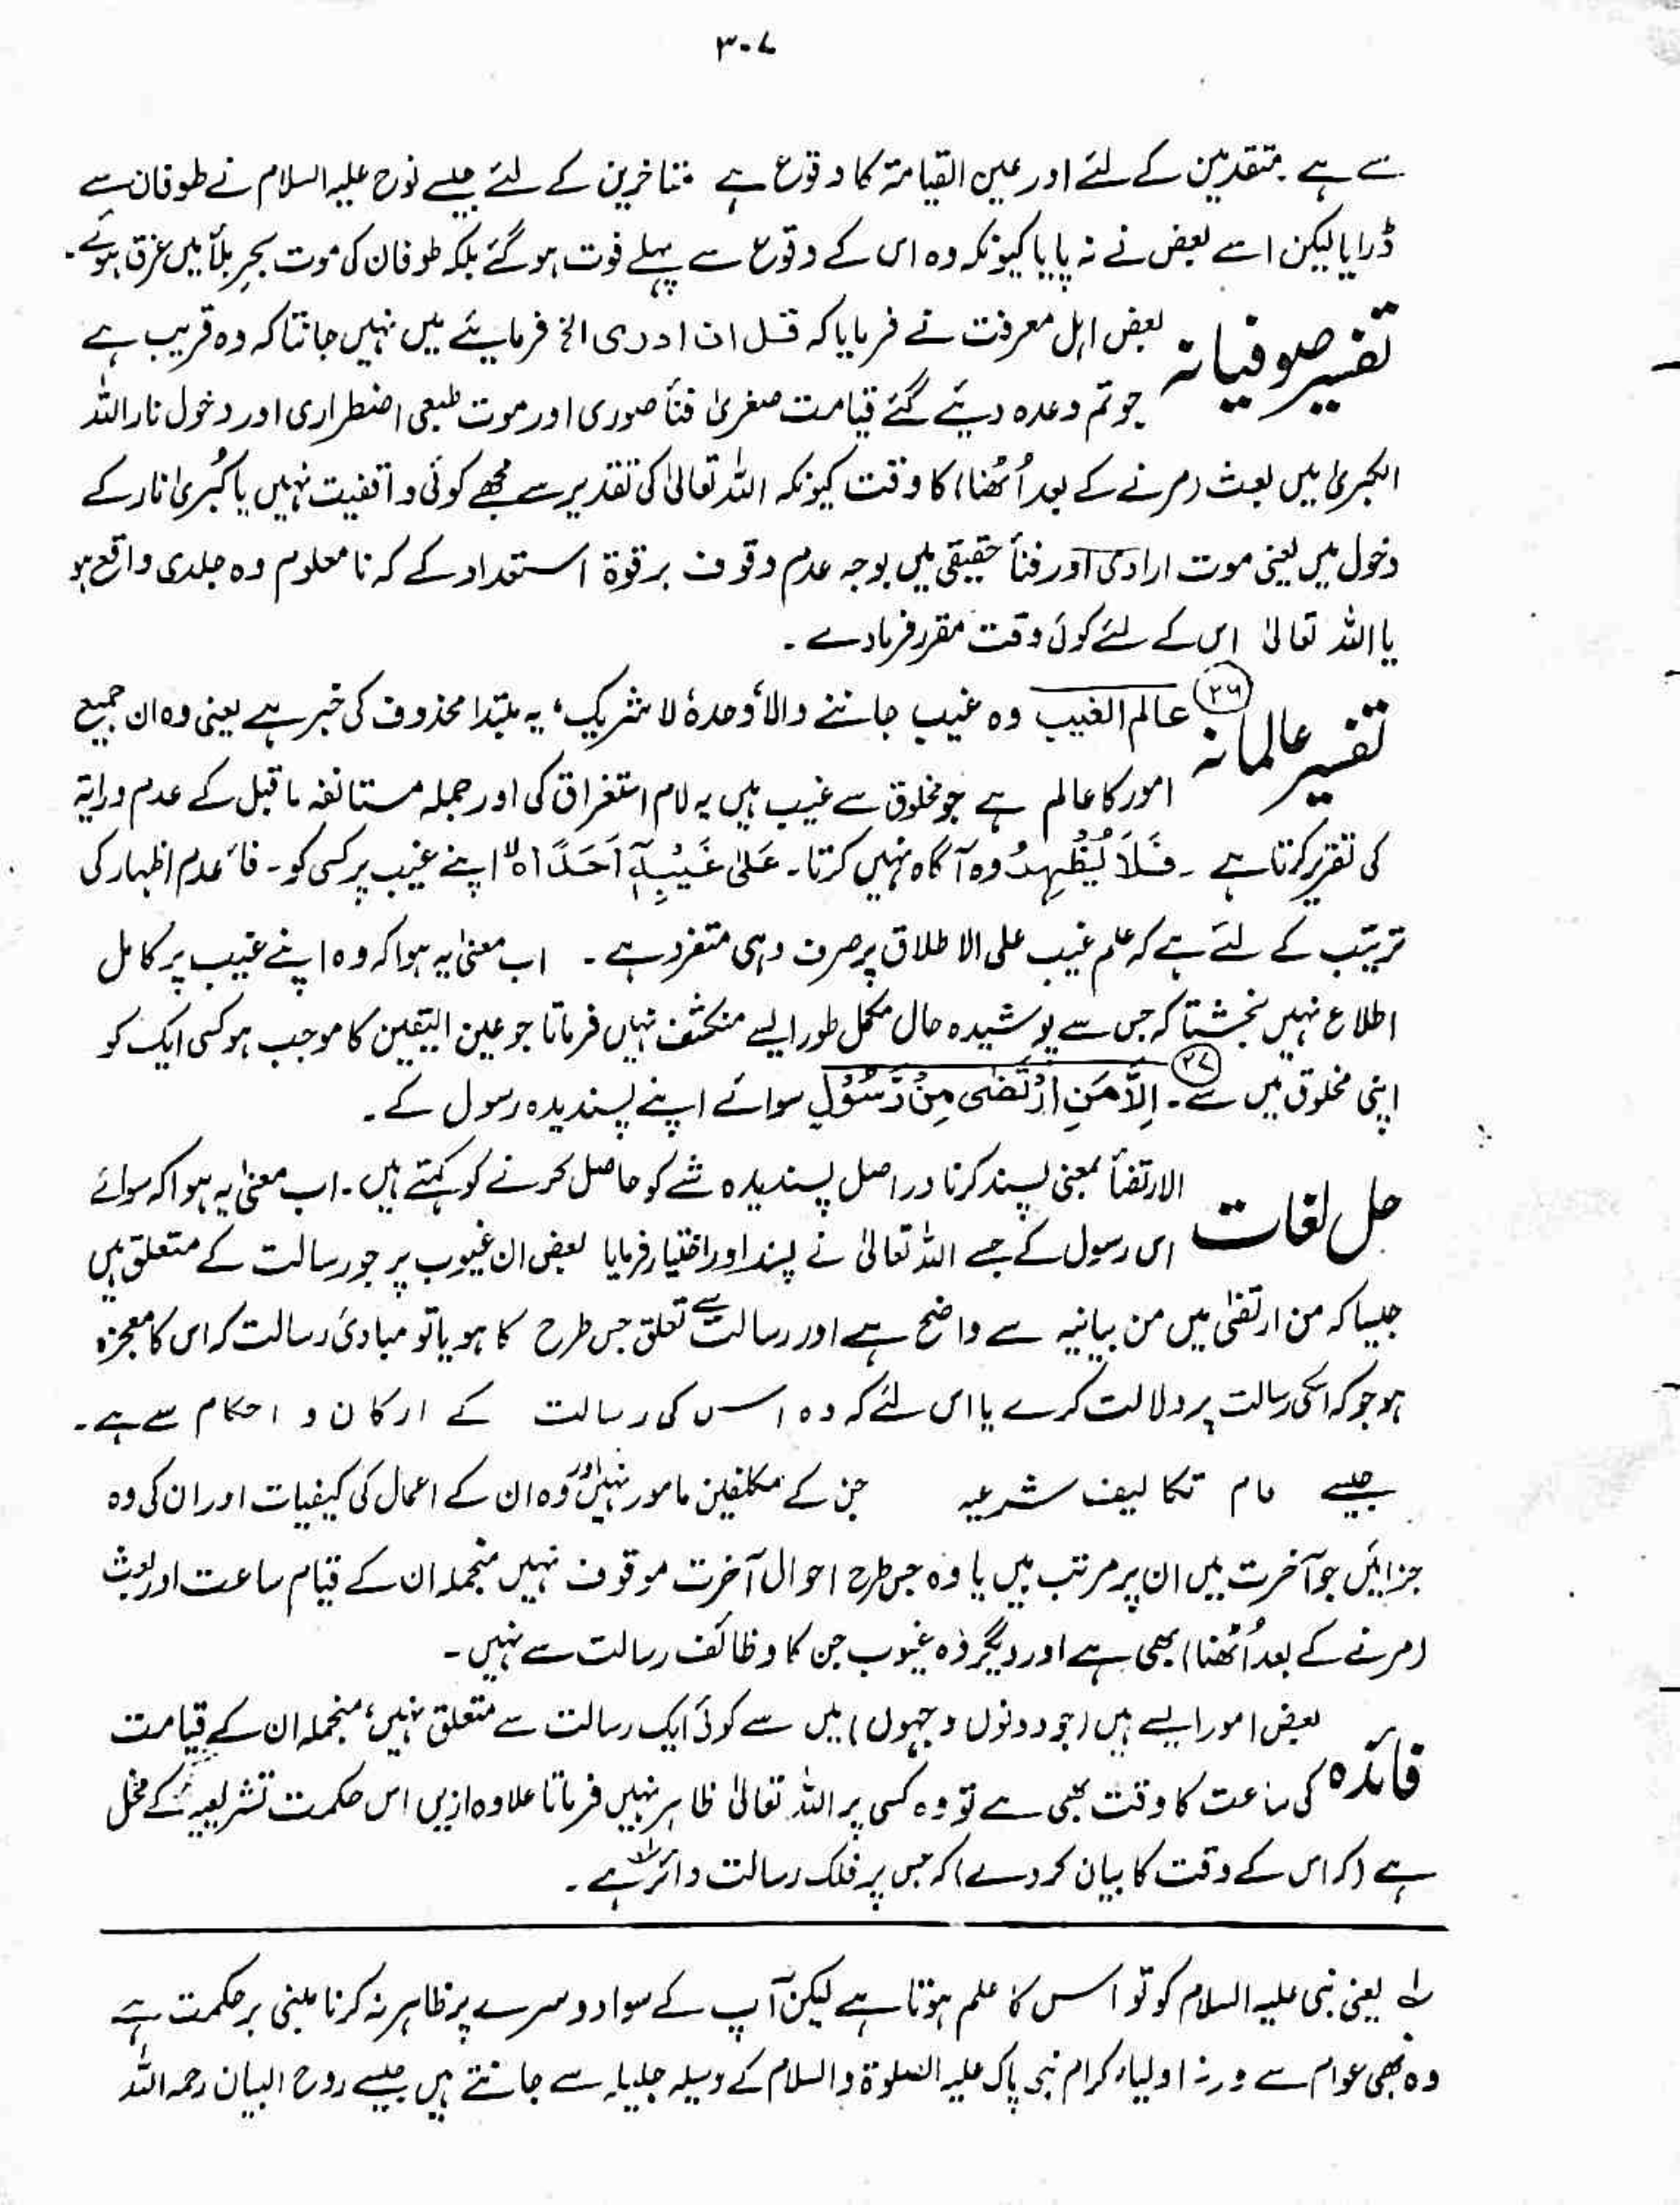 ۳۰۷
سے ہے ۔ متقدمین کے لئے اور عین القیامۃ کا وقوع ہے متاخرین کے لئے جیسے نوح علیہ السلام نے طوفان سے
ڈرایا لیکن اسے بعض نے نہ پایا کیونکہ وہ اس کے وقوع سے پہلے فوت ہو گئے بلکہ طوفان کی موت بحرِ بلأ میں غرق ہوئے۔
تفسیر صوفیانہ بعض اہل معرفت نے فرمایا کہ قل ان ادری الخ فرمائیے میں نہیں جانتا کہ وہ قریب ہے
جو تم وعدہ دیئے گئے قیامت صغریٰ فنأ صوری اور موت طبعی اضطراری اور دخول نار اللہ
الکبریٰ میں بعث (مرنے کے بعد اُٹھنا) کا وقت کیونکہ اللہ تعالیٰ کی تقدیر سے مجھے کوئی واقفیت نہیں یا کُبریٰ نار کے
دخول میں یعنی موت ارادی اور فنأ حقیقی میں بوجہ عدم وقوف بر قوۃ استعداد کے کہ نا معلوم وہ جلدی واقع ہو
یا اللہ تعالیٰ اس کے لئے کوئی وقت مقرر فرمادے ۔
تفسیر عالمانہ ۲۶ عالم الغیب وہ غیب جاننے والا ٗوحدہٗ لا شریک، یہ مبتدا محذوف کی خبر ہے یعنی وہ ان جمیع
امور کا عالم ہے جو مخلوق سے غیب ہیں یہ لام استغراق کی اور جملہ مستانفہ ما قبل کے عدم درایۃ
کی تقریر کرتا ہے ۔ فَلَا یُظْہِرُ وہ آگاہ نہیں کرتا۔ عَلٰی غَیْبِہٖٓ اَحَدًا ہ لا اپنے غیب پر کسی کو ۔ فأ عدم اظہار کی
ترتیب کے لئے ہے کہ علم غیب علی الاطلاق پر صرف وہی متفرد ہے ۔ اب معنیٰ یہ ہوا کہ وہ اپنے غیب پر کامل
اطلاع نہیں بخشتا کہ جس سے پوشیدہ حال مکمل طور ایسے منکشف نہیں فرماتا جو عین الیقین کا موجب ہو کسی ایک کو
اپنی مخلوق میں سے ۔ ۲۷ اِلَّا مَنِ ارْتَضٰی مِنْ رَّسُوْلٍ سوائے اپنے پسندیدہ رسول کے ۔
حل لغات الارتضأ بمعنی پسند کرنا دراصل پسندیدہ شے کو حاصل کرنے کو کہتے ہیں ۔ اب معنیٰ یہ ہوا کہ سوائے
اس رسول کے جسے اللہ تعالیٰ نے پسند اور اختیار فرمایا بعض ان غیوب پر جو رسالت کے متعلق ہیں
جیسا کہ من ارتضیٰ میں من بیانیہ سے واضح ہے اور رسالت سے تعلق جس طرح کا ہو یا تو مبادیٔ رسالت کہ اس کا معجزہ
ہو جو کہ اسکی رسالت پر دلالت کرے یا اس لئے کہ وہ اس کی رسالت کے ارکان و احکام سے ہے ۔
جیسے عام تکالیف شرعیہ جن کے مکلفین مامور ہیں اور وہ ان کے اعمال کی کیفیات اور ان کی وہ
جزائیں جو آخرت میں ان پر مرتب ہیں یا وہ جس طرح احوال آخرت موقوف نہیں منجملہ ان کے قیام ساعت اور بعث
(مرنے کے بعد اُٹھنا) بھی ہے اور دیگر وہ غیوب جن کا وظائف رسالت سے نہیں ۔
فائدہ بعض امور ایسے ہیں (جو دونوں وجہوں) میں سے کوئی ایک رسالت سے متعلق نہیں، منجملہ ان کے قیامت
کی ساعت کا وقت بھی ہے تو وہ کسی پر اللہ تعالیٰ ظاہر نہیں فرماتا علاوہ ازیں اس حکمت تشریعیہ کے مخل
ہے (کہ اس کے وقت کا بیان کردے) کہ جس پر فلک رسالت دائر ہے ۔
لہ یعنی نبی علیہ السلام کو تو اس کا علم ہوتا ہے لیکن آپ کے سوا دوسرے پر ظاہر نہ کرنا مبنی بر حکمت ہے
وہ بھی عوام سے ورنہ اولیاء کرام نبی پاک علیہ الصلوۃ والسلام کے وسیلہ جلیلہ سے جانتے ہیں جیسے روح البیان رحمہ اللہ